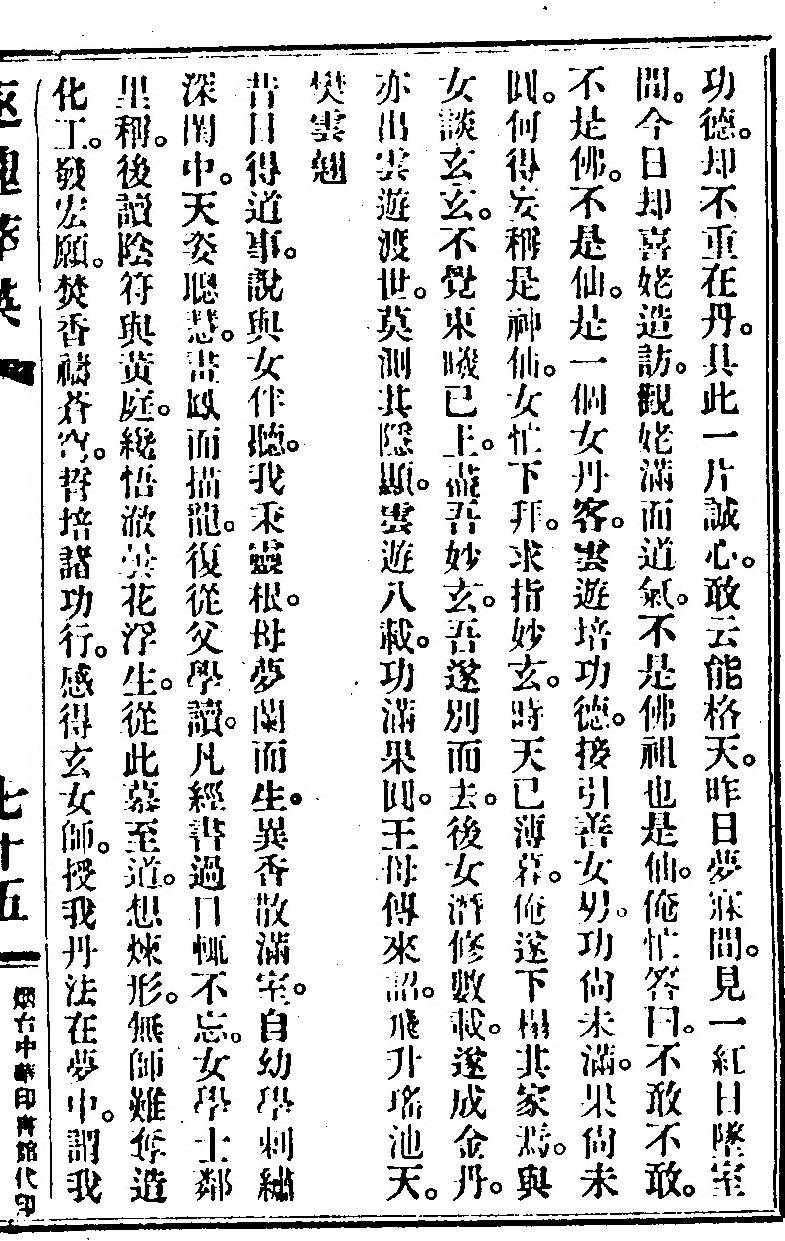 功德。却不重在丹。具此一片誠心。敢云能格天。昨日夢寐間。見一紅日墜室
間。今日却喜姥造訪。觀姥滿面道氣。不是佛祖也是仙。俺忙答曰。不敢不敢。
不是佛。不是仙。是一個女丹客。雲遊培功德。接引善女男。功尚未滿。果尚未
圓。何得妄稱是神仙。女忙下拜。求指妙玄。時天已薄暮。俺遂下榻其家焉。與
女談玄玄。不覺東曦已上。盡吾妙玄。吾遂別而去。後女潛修數載。遂成金丹。
亦出雲遊渡世。莫測其隱顯。雲遊八載。功滿果圓。王母傳來詔。飛升瑤池天。
樊雲翹
昔日得道事。說與女伴聽。我秉靈根。母夢蘭而生。異香散滿室。自幼學刺繡
深閨中。天姿聰慧。書鳳而描龍。復從父學讀。凡經書過目輒不忘。女學士鄰
里稱。後讀陰符與黃庭。纔悟澈曇花浮生。從此慕至道。想煉形。無師難奪造
化工。發宏願。焚香禱蒼穹。誓培諸功行。感得玄女師。授我丹法在夢中。謂我
七十五
烟台中華印書館代印